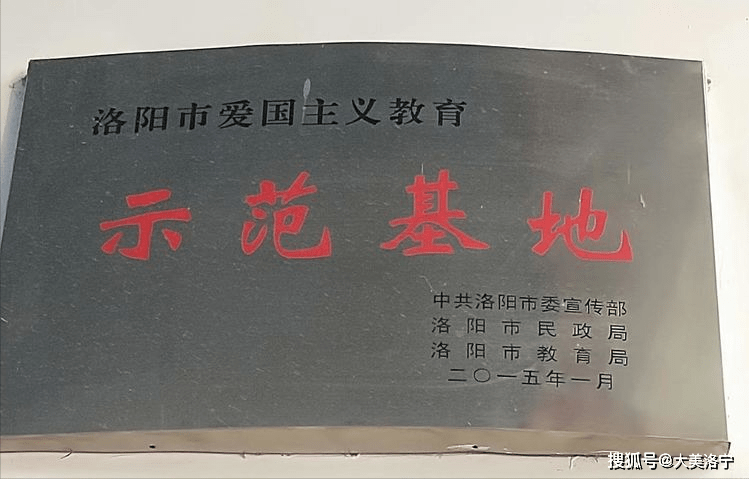 洛阳市爱国主义教育
示范基地
中共洛阳市委宣传部
洛阳市民政局
洛阳市教育局
二〇一五年一月
搜狐号@大美洛宁